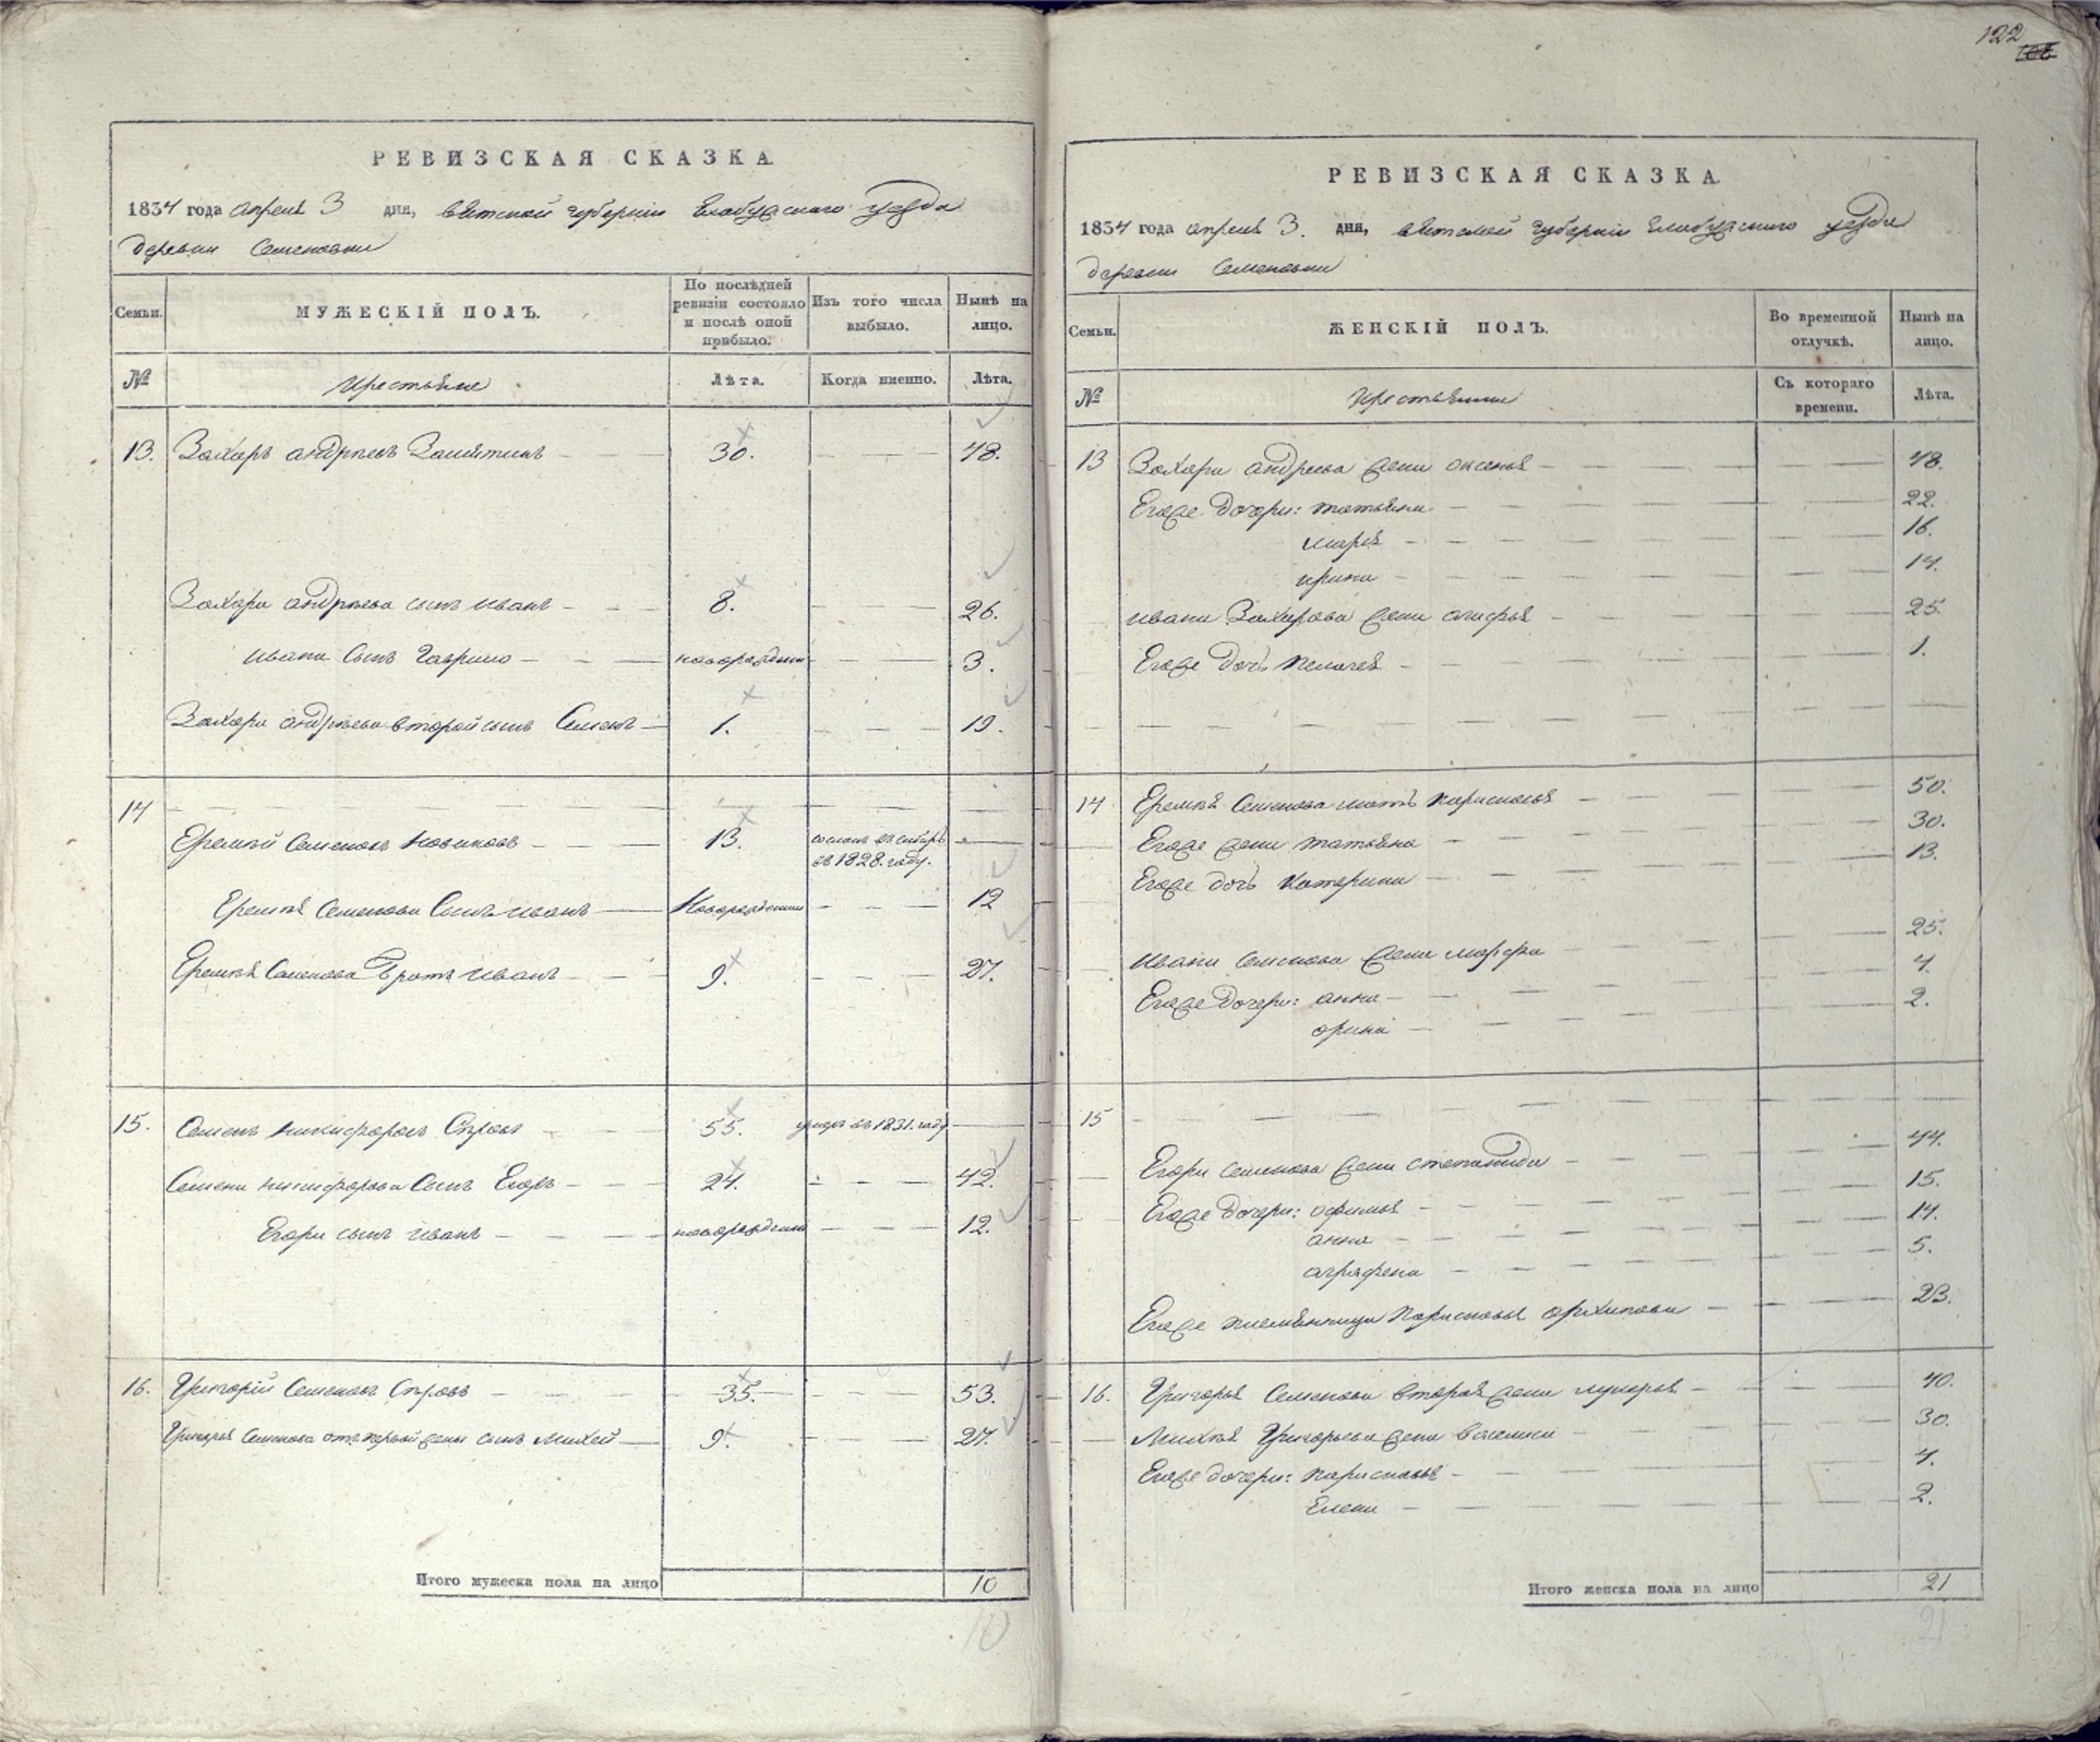 122
РЕВИЗСКАЯ СКАЗКА.
1834 года апреля 3 дня, вятской губернии Елабужского уезда
деревни Семеновки
Семьи.
МУЖЕСКІЙ ПОЛЪ.
По послѣдней ревизіи состояло и послѣ оной прибыло.
Изъ того числа выбыло.
Нынѣ на лицо.
№
Крестьяне
Лѣта.
Когда именно.
Лѣта.
13. Захаръ андреевъ 30. 48.
Захара андреева сынъ иванъ 8. 26.
ивана сынъ Гаврило новорожден 3.
Захара андреева второй сынъ Семенъ 1. 19.
14
Еремей Семеновъ Новиковъ 13. сосланъ въ сибирь
въ 1828. году.
Еремея Семенова Сынъ иванъ Новорожденный 12
Еремея Семенова Братъ иванъ 9. 27.
15. Семенъ никифоровъ 55. умеръ въ 1831. году
Семена никифорова Сынъ Егоръ 24. 42.
Егора сынъ иванъ новорожден 12.
16. Григорій Семеновъ 35. 53.
Григорья Семенова отъ первой жены сынъ Михей 9. 27.
Итого мужеска пола на лицо 10
10
РЕВИЗСКАЯ СКАЗКА.
1834 года апреля 3. дня, вятской губерніи Елабужского уезда
деревни Семеновки
Семьи.
ЖЕНСКІЙ ПОЛЪ.
Во временной отлучкѣ.
Нынѣ на лицо.
№
Съ котораго времени.
Лѣта.
13 Захара андреева жена аксенья 48.
Егоже дочери: татьяна 22.
марья 16.
ирина 14.
ивана Захарова жена 25.
Егоже дочь пелагея 1.
14 Еремея Семенова мать парасковья 50.
Егоже жена татьяна 30.
Егоже дочь катерина 13.
ивана семенова жена марфа 25.
Егоже дочери: анна 4.
орина 2.
15
Егора семенова жена степанида 44.
Егоже дочери: офимья 15.
анна 14.
аграфена 5.
Егоже племянница парасковья архипова 23.
16. Григорья Семенова вторая жена лукерья 40.
Михея Григорьева жена василиса 30.
Егоже дочери: парасковья 4.
Елена 2.
Итого женска пола на лицо 21
21